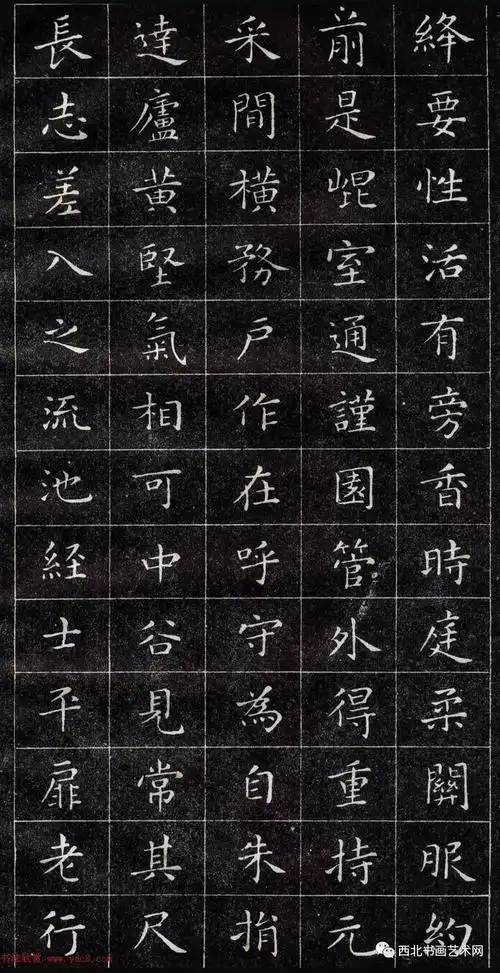 絳要性活有旁香時庭柔關服約
前是崐室通謹園管外得重持元
采間橫務戶作在呼守為自朱捐
達廬黄堅氣相可中谷見常其尺
長志差入之流池経士平扉老行
西北书画艺术网
书法欣赏 www.yac8.com